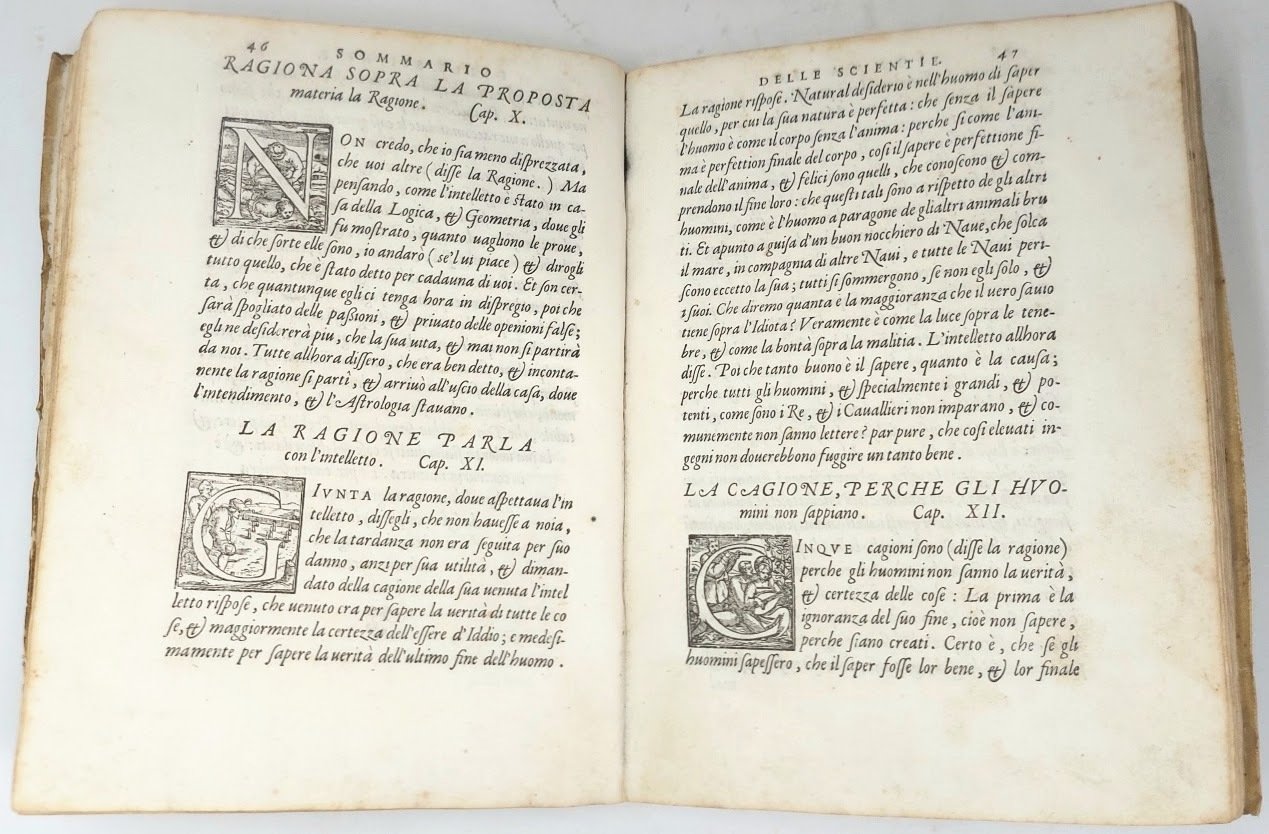 46
SOMMARIO
RAGIONA SOPRA LA PROPOSTA
materia la Ragione. Cap. X.
NON credo, che io sia meno disprezzata,
che voi altre (disse la Ragione.) Ma
pensando, come l'intelletto è stato in ca-
sa della Logica, & Geometria, doue gli
fu mostrato, quanto vagliono le proue,
& di che sorte elle sono, io andarò (se'l ui piace) & dirogli
tutto quello, che è stato detto per cadauna di voi. Et son cer-
ta, che quantunque egli ci tenga hora in dispregio, poi che
sarà spogliato delle passioni, & privato delle openioni false;
egli ne desidererà piu, che la sua uita, & mai non si partirà
da noi. Tutte allhora dissero, che era ben detto, & inconta-
nente la ragione si partì, & arriuò all'uscio della casa, doue
l'intendimento, & l'Astrologia stauano.
LA RAGIONE PARLA
con l'intelletto. Cap. XI.
GIVNTA la ragione, doue aspettaua l'in
telletto, dissegli, che non hauesse a noia,
che la tardanza non era seguita per suo
danno, anzi per sua utilità, & diman-
dato della cagione della sua venuta l'intel
letto rispose, che venuto era per sapere la verità di tutte le co
se, & maggiormente la certezza dell'essere d'Iddio; e medesi-
mamente per sapere la verità dell'ultimo fine dell'huomo.
DELLE SCIENTIE. 47
La ragione rispose. Natural desiderio è nell'huomo di saper
quello, per cui la sua natura è perfetta: che senza il sapere
l'huomo è come il corpo senza l'anima: perche si come l'ani-
ma è perfettion finale del corpo, così il sapere è perfettione fi-
nale dell'anima, & felici sono quelli, che conoscono & com-
prendono il fine loro: che questi tali sono a rispetto de gli altri
huomini, come è l'huomo a paragone de glialtri animali bru
ti. Et apunto a guisa d'un buon nocchiero di Naue, che solca
il mare, in compagnia di altre Naui, e tutte le Naui peri-
scono eccetto la sua; tutti si sommergono, se non egli solo, &
i suoi. Che diremo quanta è la maggioranza che il vero sauio
tiene sopra l'Idiota? Veramente è come la luce sopra le tene-
bre, & come la bontà sopra la malitia. L'intelletto allhora
disse. Poi che tanto buono è il sapere, quanto è la causa;
perche tutti gli huomini, & specialmente i grandi, & po-
tenti, come sono i Re, & i Cauallieri non imparano, & co-
munemente non sanno lettere? par pure, che così eleuati in-
gegni non douerebbono fuggire un tanto bene.
LA CAGIONE, PERCHE GLI HVO-
mini non sappiano. Cap. XII.
CINQVE cagioni sono (disse la ragione)
perche gli huomini non sanno la verità,
& certezza delle cose: La prima è la
ignoranza del suo fine, cioè non sapere,
perche siano creati. Certo è, che se gli
huomini sapessero, che il saper fosse lor bene, & lor finale